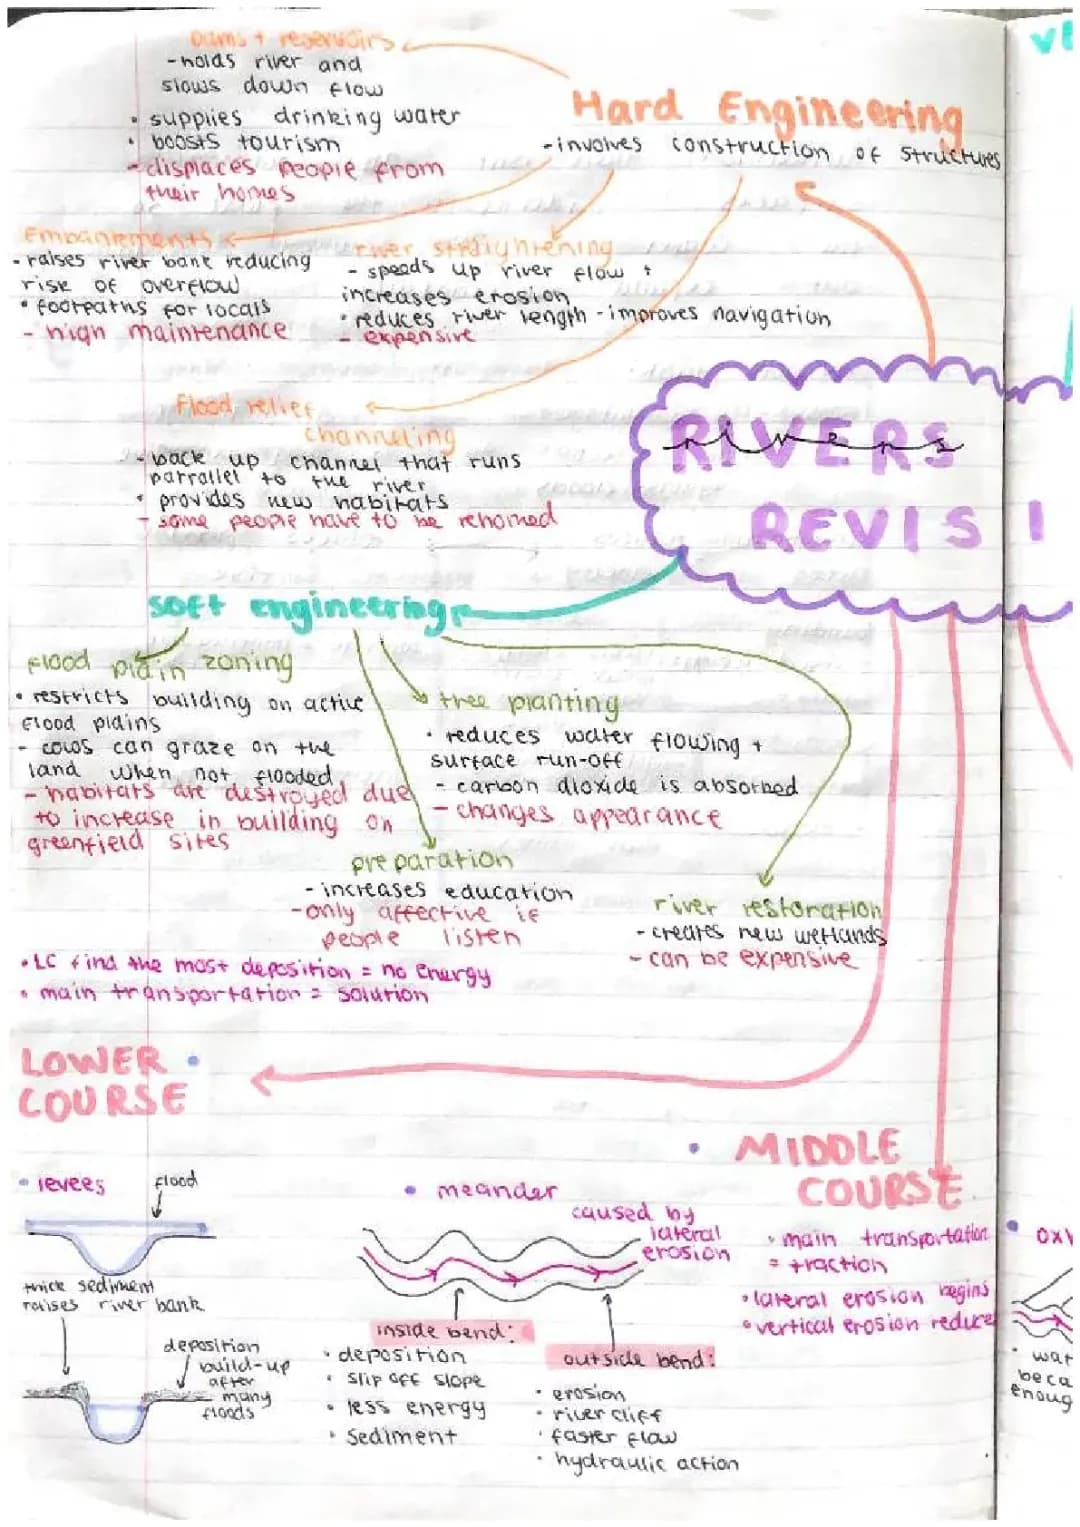 Dams + reservoirs
- holds river and
slows down flow
• supplies drinking water
• boosts tourism
- displaces people from
their homes
Hard Engineering
- involves construction of structures
Embankments
• raises river bank reducing
rise of overflow
• footpaths for locals
- high maintenance
river straightening
- speeds up river flow +
increases erosion
• reduces river length - improves navigation
- expensive
Flood relief
channeling
- back up channel that runs
parrallel to the river
• provides new habitats
- some people have to be rehomed
RIVERS
rivers
REVISI
soft engineering
flood plain zoning
• restricts building on active
flood plains
- cows can graze on the
land when not flooded
- habitats are destroyed due
to increase in building on
greenfield sites
tree planting
• reduces water flowing +
surface run-off
- carbon dioxide is absorbed
- changes appearance
preparation
- increases education
- only affective if
people listen
river restoration
- creates new wetlands
- can be expensive
• LC find the most deposition = no energy
• main transportation = solution
LOWER
COURSE
• MIDDLE
COURSE
• main transportation
= traction
• lateral erosion begins
• vertical erosion reduces
• levees
flood
thick sediment
raises river bank
deposition
build-up
after
many
floods
• meander
caused by
lateral
erosion
inside bend:
• deposition
• slip off slope
• less energy
• sediment
outside bend:
• erosion
• river cliff
• faster flow
• hydraulic action
• wat
beca
enoug